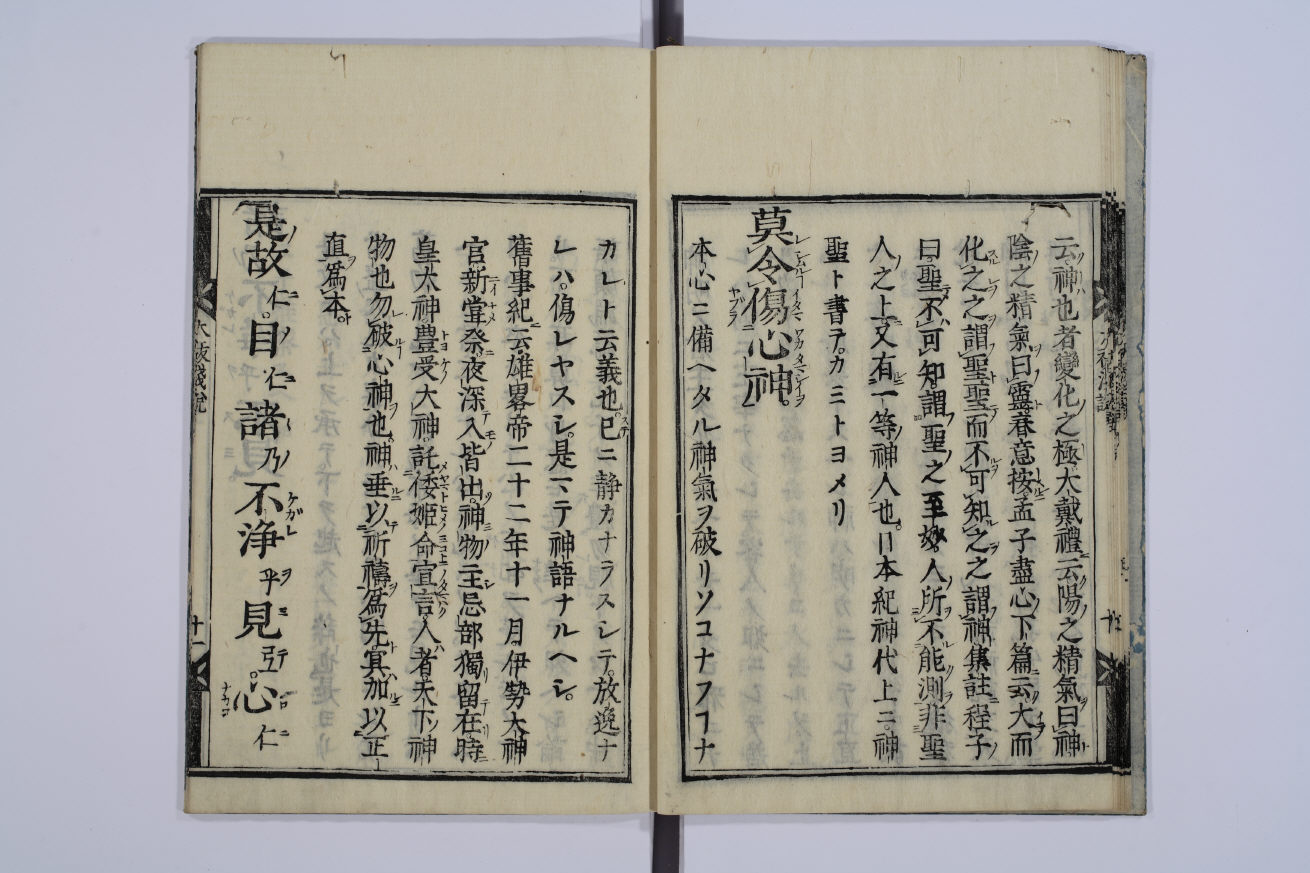 云神也者變化之極大戴禮云陽之精氣曰神
陰之精氣曰靈眷意按孟子盡心下篇云大而
化之之謂聖聖而不可知之之謂神集註程子
曰聖不可知謂聖之至妙人所不能測非聖
人之上又有一等神人也日本紀神代上ニ神
聖ト書テカミトヨメリ
莫令傷心神
本心ニ備ヘタル神氣ヲ破リソコナフヿナ
カレト云義也已ニ静カナラスシテ放逸ナ
レハ傷レヤスシ是ヿテ神語ナルヘシ
舊事紀云雄畧帝二十二年十一月伊勢大神
官新甞祭夜深入皆出神物主忌部獨留在時
皇太神豊受大神託倭姫命宣言人者天下神
物也勿破心神也神垂以祈禱爲先冥加以正
直爲本
是故仁目仁諸乃不浄乎見弖心仁
大祓
十一